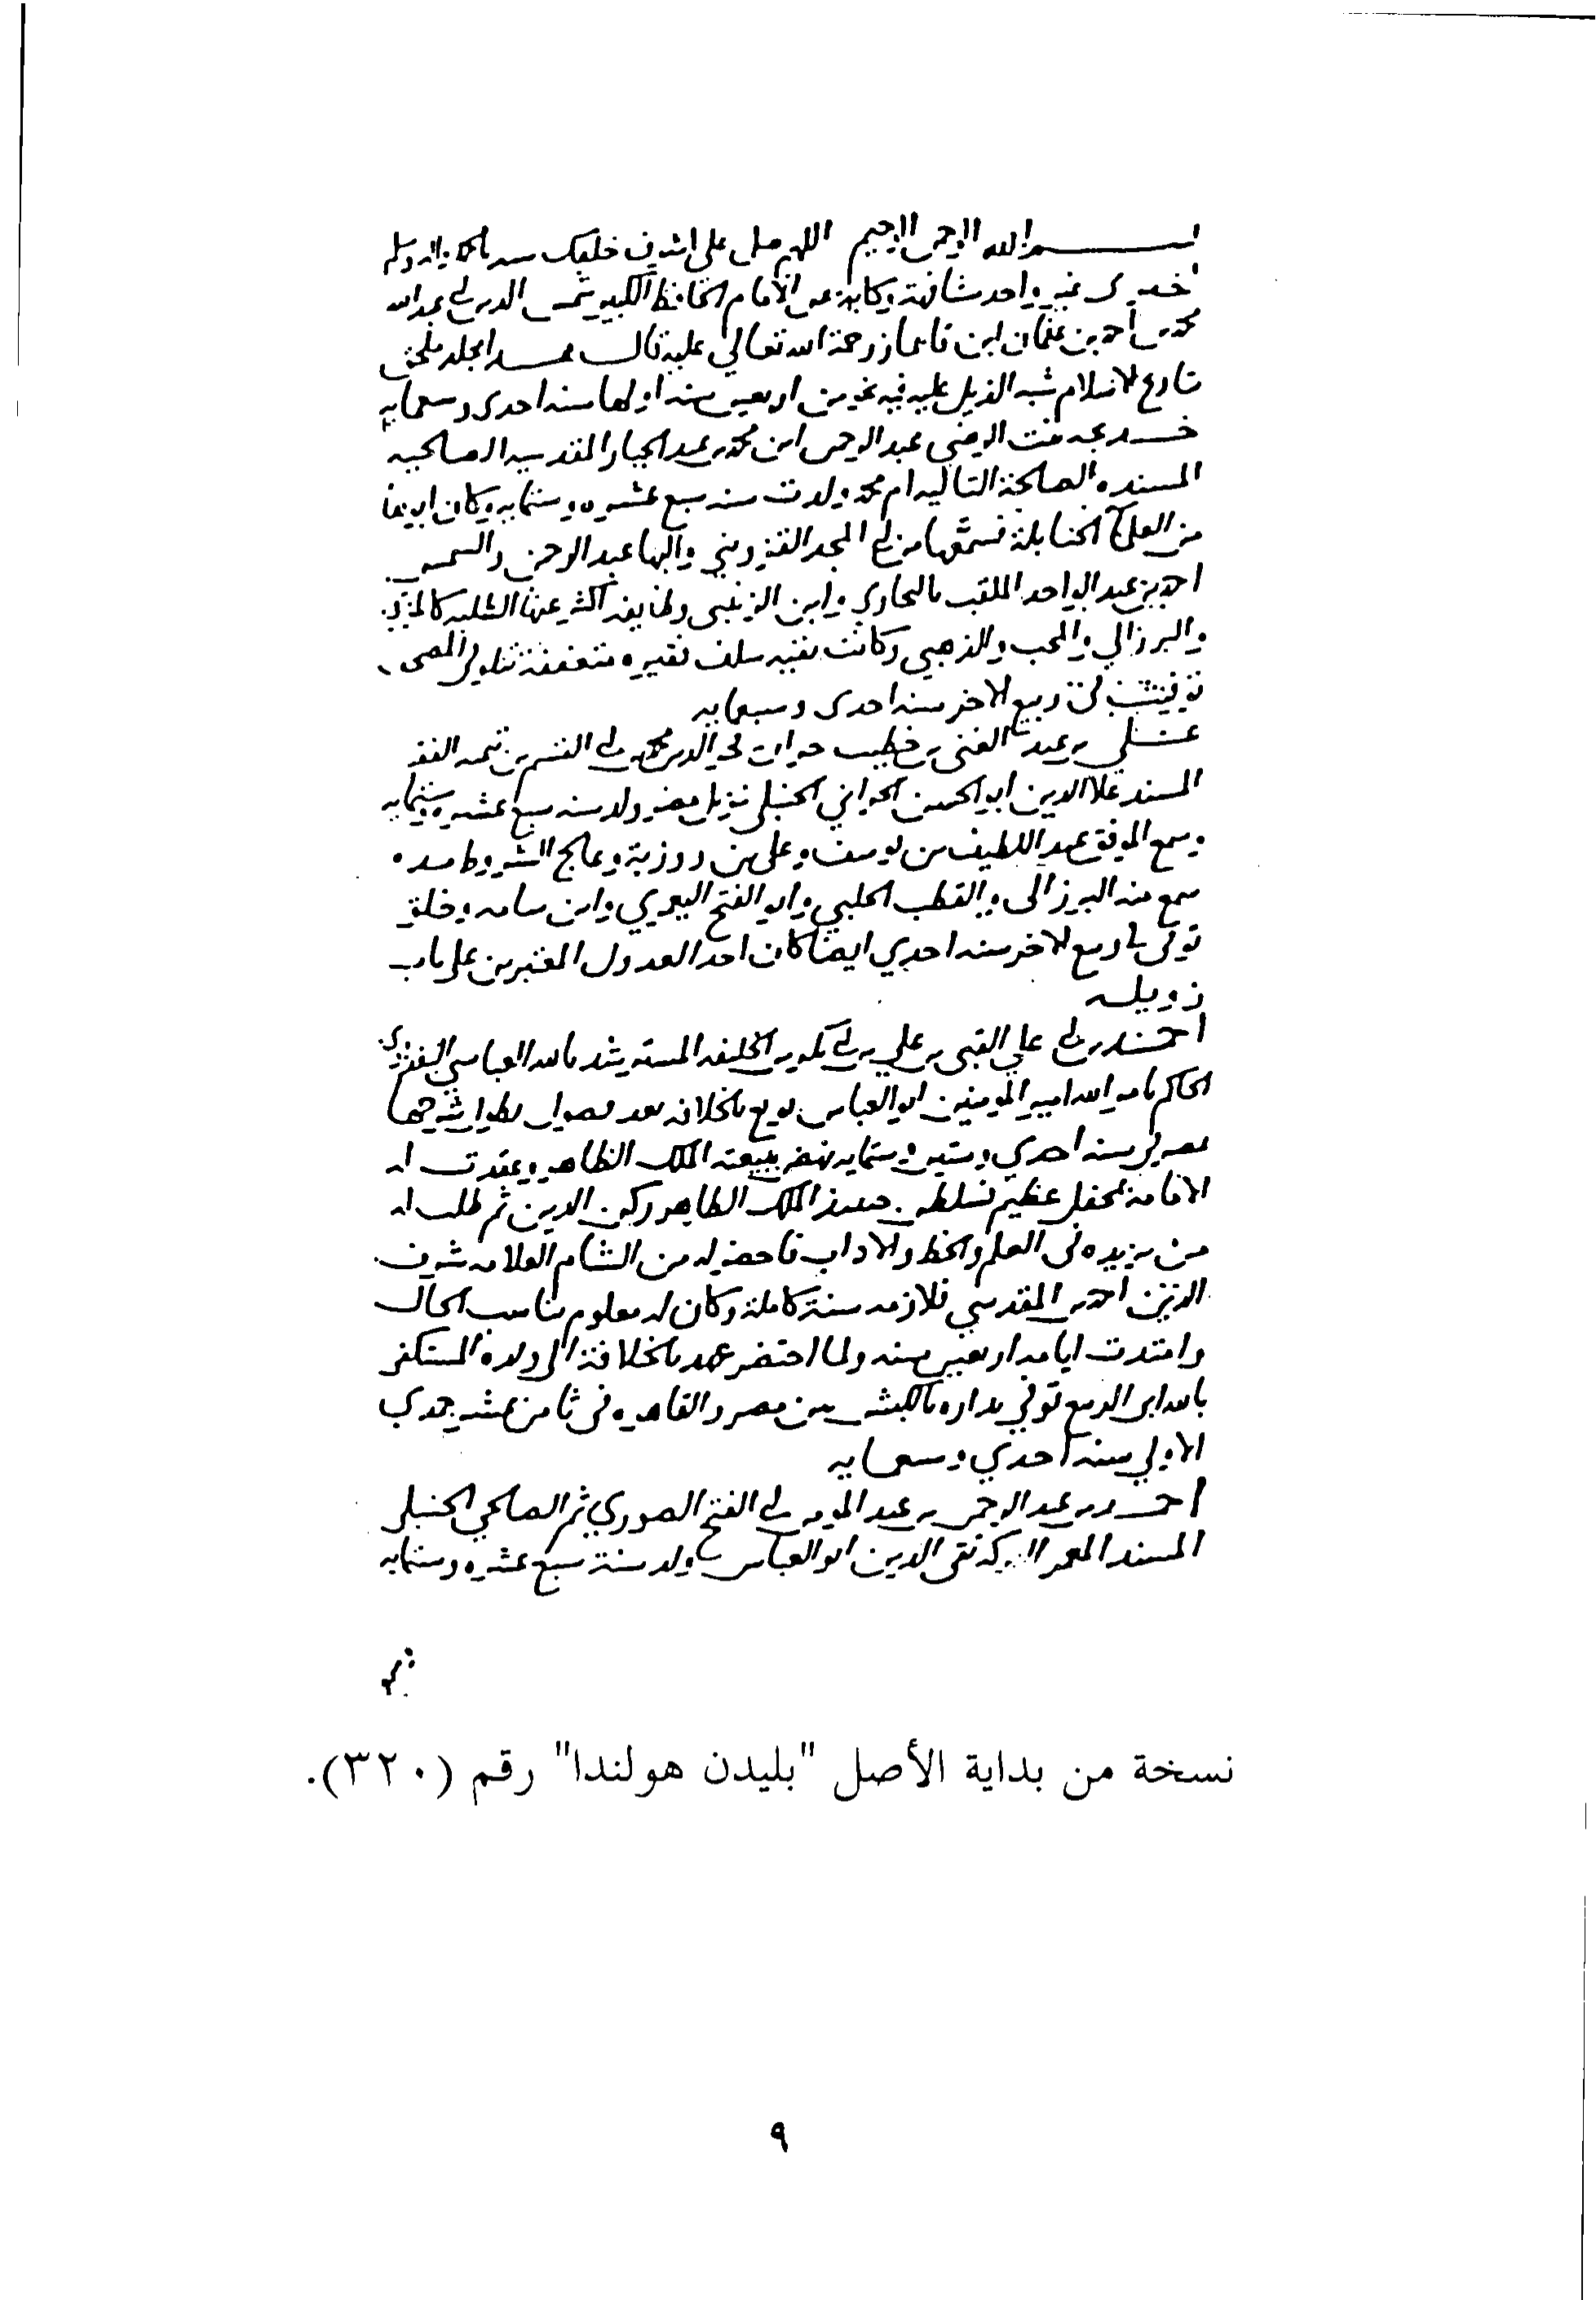 بسم الله الرحمن الرحيم اللهم صل على اشرف خلقك سيدنا محمد واله وسلم
اخبرني غير واحد مشافهة وكتابة عن الامام الحافظ الكبير شمس الدين ابي عبد الله
محمد بن احمد بن عثمان ابن قايماز رحمة الله تعالى عليه قال هذا مجلد ملحق
بتاريخ الاسلام شبه الذيل عليه فيه نحو من اربعين سنه اولها سنه احدى وسبعمايه
خديجه بنت الرضي عبد الرحمن ابن محمد بن عبد الجبار المقدسيه الصالحيه
المسنده الصالحة التاليه ام محمد ولدت سنه سبع عشره وستمايه وكان ابوها
من العلماء الحنابلة فسمعها من ابي المجد القزويني والبها عبد الرحمن والشمس
احمد بن عبد الواحد الملقب بالبخاري وابن الزبيدي وطايفه اكثر عنها الطلبه كالمزي
والبرزالي والمحب والذهبي وكانت بقيه سلف فقيره متعففة
توفيت في ربيع الاخر سنه احدى وسبعمايه
علي بن عبد الغني بن خطيب حران فخر الدين محمد بن ابي القسم بن تيميه الفقيه
المسند علا الدين ابو الحسن الحراني الحنبلي نزيل مصر ولد سنه سبع عشره وستمايه
وسمع الموفق عبد اللطيف بن يوسف وعلي بن روزبة وعالج الشروط مده
سمع منه البرزالي والقطب الحلبي وابو الفتح اليعمري وابن سامه وخلق
توفي في ربيع الاخر سنه احدي ايضا كان احد العدول المعتبرين على باب
زويله
احمد بن ابي علي القبي بن علي بن ابي بكر بن الخليفه المسترشد بالله العباسي البغدادي
الحاكم بامر الله امير المومنين ابو العباس بويع بالخلافه بعد
مصر في سنه احدي وستين وستمايه نهض ببيعته الملك الظاهر وعقدت له
الامامة بمحفل عظيم فسلطن حينئذ الملك الظاهر ركن الدين ثم طلب له
من يزيده في العلم والخط والاداب فاحضر له من الشام العلامه شرف
الدين احمد بن المقدسي فلازمه سنة كاملة وكان له معلوم يناسب الحال
وامتدت ايامه اربعين سنه ولما احتضر عهد بالخلافة الى ولده المستكفي
بالله ابي الربيع توفي بداره بالكبش بين مصر والقاهره في ثامن عشر جمدي
الاولي سنه احدي وسبعمايه
احمد بن عبد الرحمن بن عبد المومن بن ابي الفتح الصوري ثم الصالحي الحنبلي
المسند المعمر البركه تقي الدين ابو العباس ولد سنة سبع عشره وستمايه
نسخة من بداية الأصل "بليدن هولندا" رقم (٣٢٠).
٩